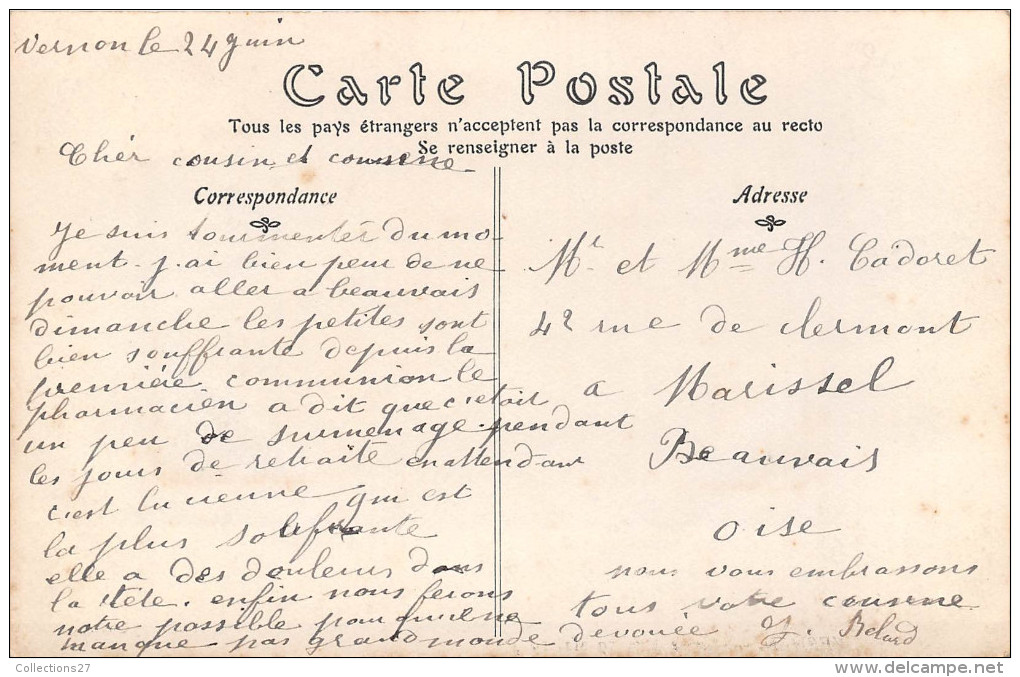 Vernon le 24 juin
Carte Postale
Tous les pays étrangers n'acceptent pas la correspondance au recto
Se renseigner à la poste
Chér cousin et cousine
Correspondance
Je suis tourmenter du mo-
ment. j.ai bien peur de ne
pouvoir aller a beauvais
dimanche les petites sont
bien souffrante depuis la
premiére communion le
pharmacien a dit que c'etait
un peu de surmenage. pendant
les jours de retraite en attendant
c'est lucienne qui est
la plus souffrante
elle a des douleurs dans
la tête. enfin nous ferons
notre possible pour qu'il ne
manque pas grand monde
Adresse
Mr et Mme H. Cadoret
42 rue de clermont
a Marissel
Beauvais
Oise
nous vous embrassons
tous votre cousine
devouée
Collections27
© delcampe.net